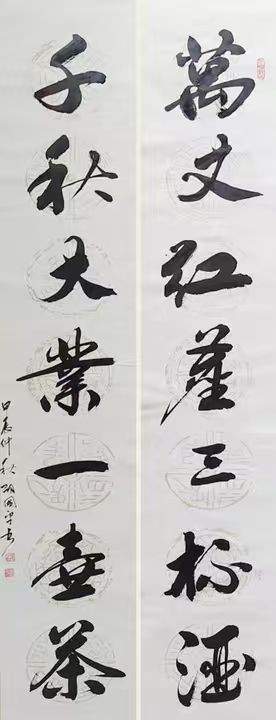 萬丈红塵三杯酒
千秋大業一壺茶
甲辰仲秋